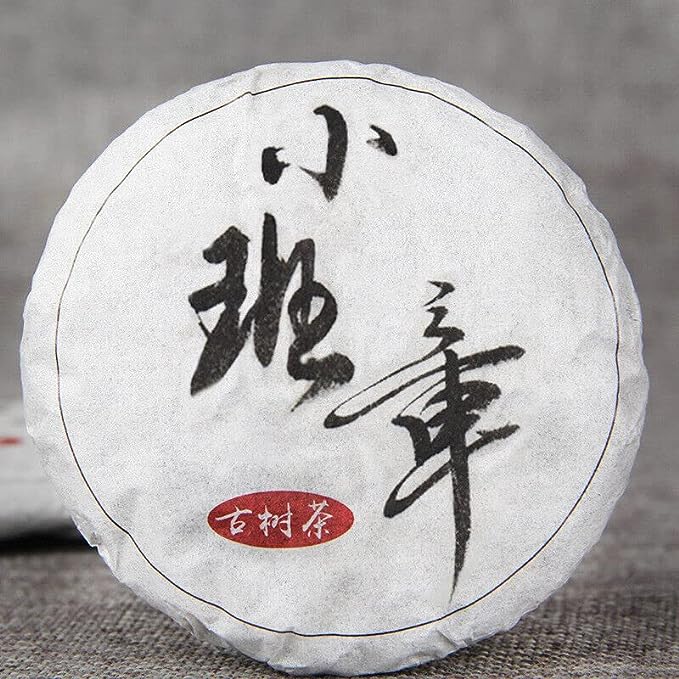 小班章
古树茶